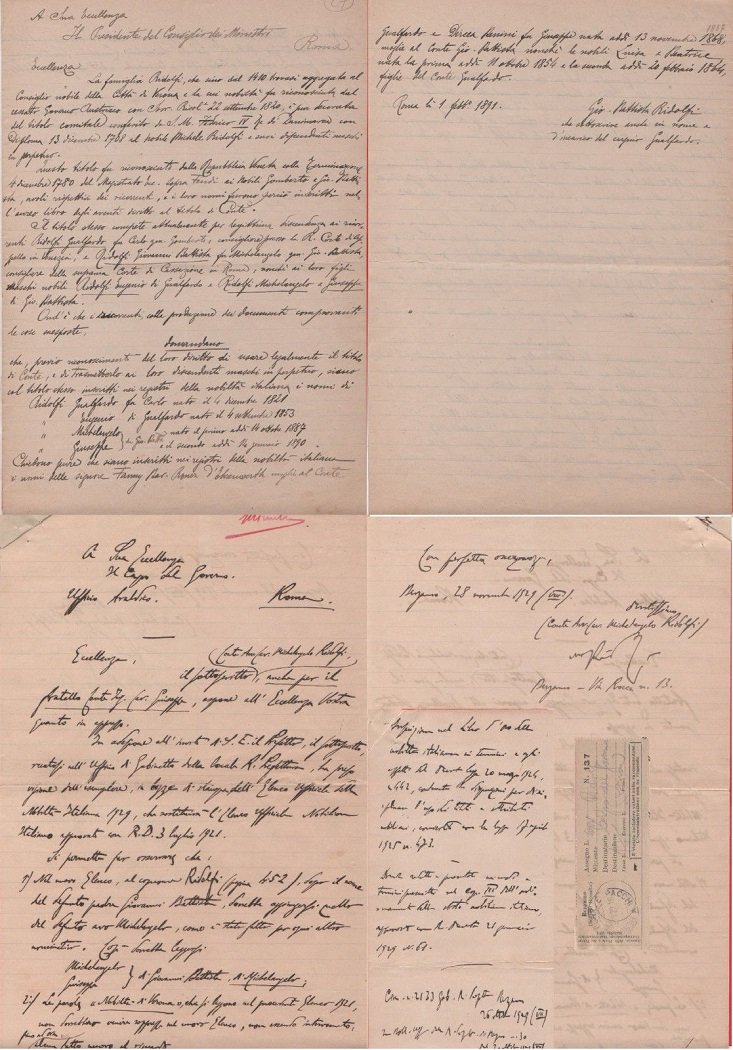 A Sua Eccellenza
Il Presidente del Consiglio dei Ministri
Roma
Eccellenza
La famiglia Ridolfi, che sino dal 1410 trovasi aggregata al
Consiglio nobile della Città di Verona e la cui nobiltà fu riconosciuta dal
cessato Governo Austriaco con Sovr. Risol. 22 settembre 1820, è pur decorata
del titolo comitale conferito da S. M. Federico IV di Danimarca con
Diploma 13 dicembre 1708 al nobile Michele Ridolfi e suoi dipendenti maschi
in perpetuo.
Questo titolo fu riconosciuto dalla Repubblica Veneta colla Terminazione
4 dicembre 1780 del Magistrato Ecc. sopra Feudi ai Nobili Gomberto e Gio. Batti
sta, avoli rispettivi dei ricorrenti, e i loro nomi furono perciò inscritti nel
l'aureo libro degli aventi diritto al titolo di Conte.
Il titolo stesso compete attualmente per legittima discendenza ai ricor
renti Ridolfi Gualfardo fu Carlo qm. Gomberto, consigliere presso la R. Corte di Ap
pello in Venezia, e Ridolfi Giovanni Battista fu Michelangelo qm. Gio. Battista
consigliere della suprema Corte di Cassazione in Roma, nonchè ai loro figli
maschi nobili Ridolfi Eugenio di Gualfardo e Ridolfi Michelangelo e Giuseppe
di Gio. Battista.
Ond'è che i ricorrenti, colla produzione dei documenti comprovanti
le cose esposte,
domandano
che, previo riconoscimento del loro diritto di usare legalmente il titolo
di Conte, e di trasmetterlo ai loro discendenti maschi in perpetuo, siano
col titolo stesso inscritti nei registri della nobiltà italiana i nomi di
Ridolfi Gualfardo fu Carlo nato il 4 dicembre 1821
" Eugenio di Gualfardo nato il 4 settembre 1853
" Michelangelo } di Gio. Batta nato il primo addì 14 ottobre 1887
" Giuseppe } e il secondo addì 14 gennaio 1890.
Chiedono pure che siano inscritti nei registri della nobiltà italiana
i nomi delle signore Fanny moglie al Conte
Gualfardo e Dircea fu Giuseppe nata addì 13 novembre 1868,
moglie al Conte Gio. Battista nonchè le nobili Luisa e
nata la prima addì 11 ottobre 1854 e la seconda addì 20 febbraio 1864,
figlie del Conte Gualfardo.
Roma li 1 febb. 1891.
Gio. Battista Ridolfi
che sottoscrive anche in nome e
d'incarico del cugino Gualfardo.
A Sua Eccellenza
Il Capo del Governo.
Ufficio Araldico.
Roma
Eccellenza,
(Conte Avv. Michelangelo Ridolfi),
il sottoscritto, anche per il
fratello Conte Ing. Cav. Giuseppe, espone all'Eccellenza Vostra
quanto in appresso.
In adesione all'invito di S. E. il Prefetto, il sottoscritto,
recatosi nell'Ufficio di Gabinetto della locale R. Prefettura, ha preso
visione dell'esemplare, in bozza di stampa dell'Elenco Ufficiale della
Nobiltà Italiana 1929, che sostituirà l'Elenco Ufficiale Nobiliare
Italiano approvato con R.D. 3 luglio 1921.
Si permette far osservare che:
1°) Nel nuovo Elenco, al cognome Ridolfi (pagina 452), dopo il nome
del defunto padre Giovanni Battista, dovrebbe aggiungersi quello
del defunto avo Michelangelo, come è stato fatto per ogni altro
nominativo. Cioè dovrebbe leggersi
Michelangelo
Giuseppe } di Giovanni Battista di Michelangelo;
2°) Le parole "Nobiltà di Verona", che si leggono nel precedente Elenco 1921,
non dovrebbero venire soppresse nel nuovo Elenco, non essendo intervenuto,
Con perfetta osservanza,
Bergamo, 28 novembre 1929 (VIII).
devotissimo
(Conte Avv. Michelangelo Ridolfi)
Bergamo - Via Rocca n. 13.
Iscrizione nel Libro d'oro della
nobiltà italiana ai termini e agli
effetti del Decreto legge 20 marzo 1924,
n. 442, recante le disposizioni per
l'uso dei titoli e attributi
nobiliari, convertito con la legge 17 aprile
1925 n. 473.
approvato con R. Decreto 21 gennaio
1929 n. 61.
N. 137
Assegno L.
Mittente
Destinatario
Destinazione
Bergamo
PACCHI